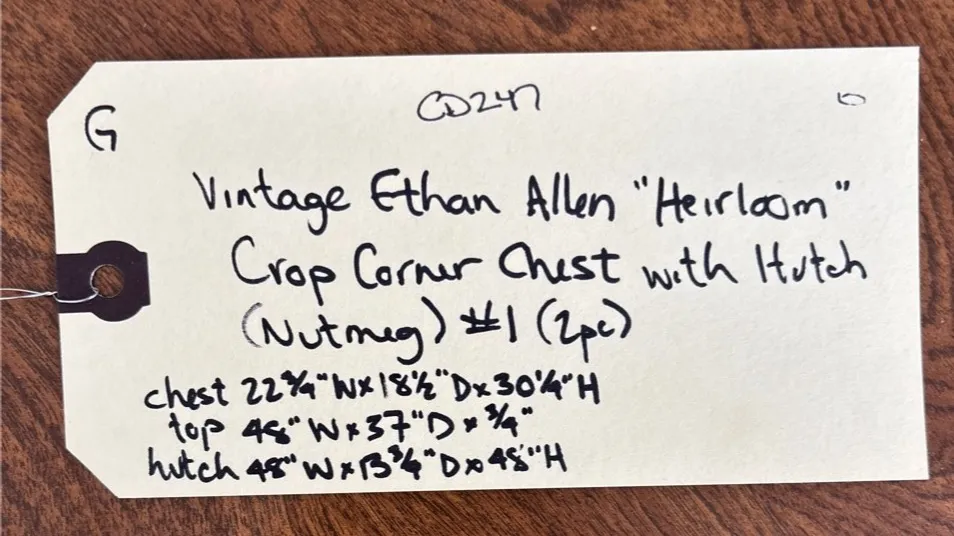 G
CD247
Vintage Ethan Allen "Heirloom"
Crop Corner Chest with Hutch
(Nutmeg) #1 (2pc)
chest 22 3/4" W x 18 1/2" D x 30 1/4" H
top 48" W x 37" D x 3/4"
hutch 48" W x 13 3/4" D x 48" H